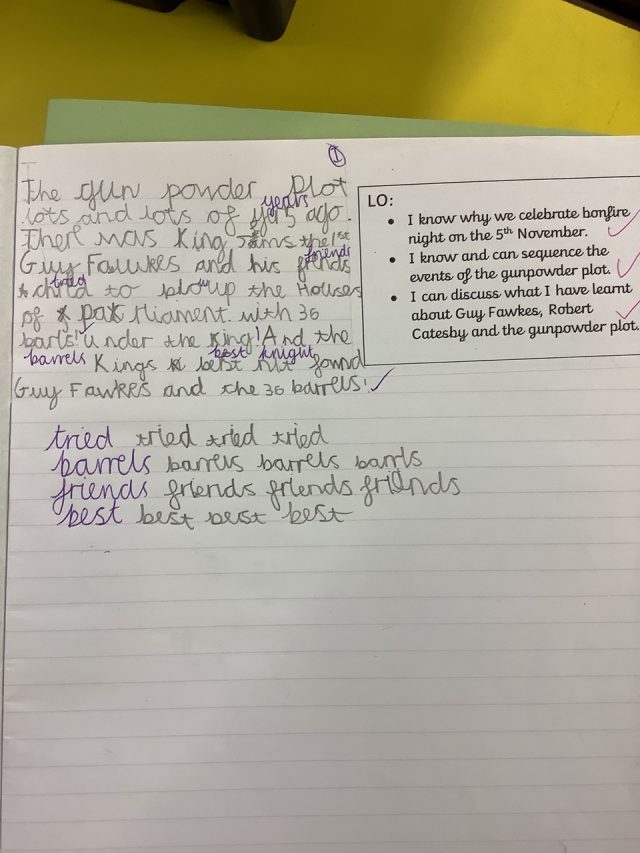 1
The gun powder Plot
years
lots and lots of yers ago.
There was King Jams the 1st
friends
Guy Fawkes and his frends
tried
chrid to blow up the Houses
of Parliament. with 36
barls! under the King! And the
barrels best knight
Kings best nit found
Guy Fawkes and the 36 barrels!
tried tried tried tried
barrels barrels barrels barrls
friends friends friends friends
best best best best
LO:
• I know why we celebrate bonfire
night on the 5th November.
• I know and can sequence the
events of the gunpowder plot.
• I can discuss what I have learnt
about Guy Fawkes, Robert
Catesby and the gunpowder plot.